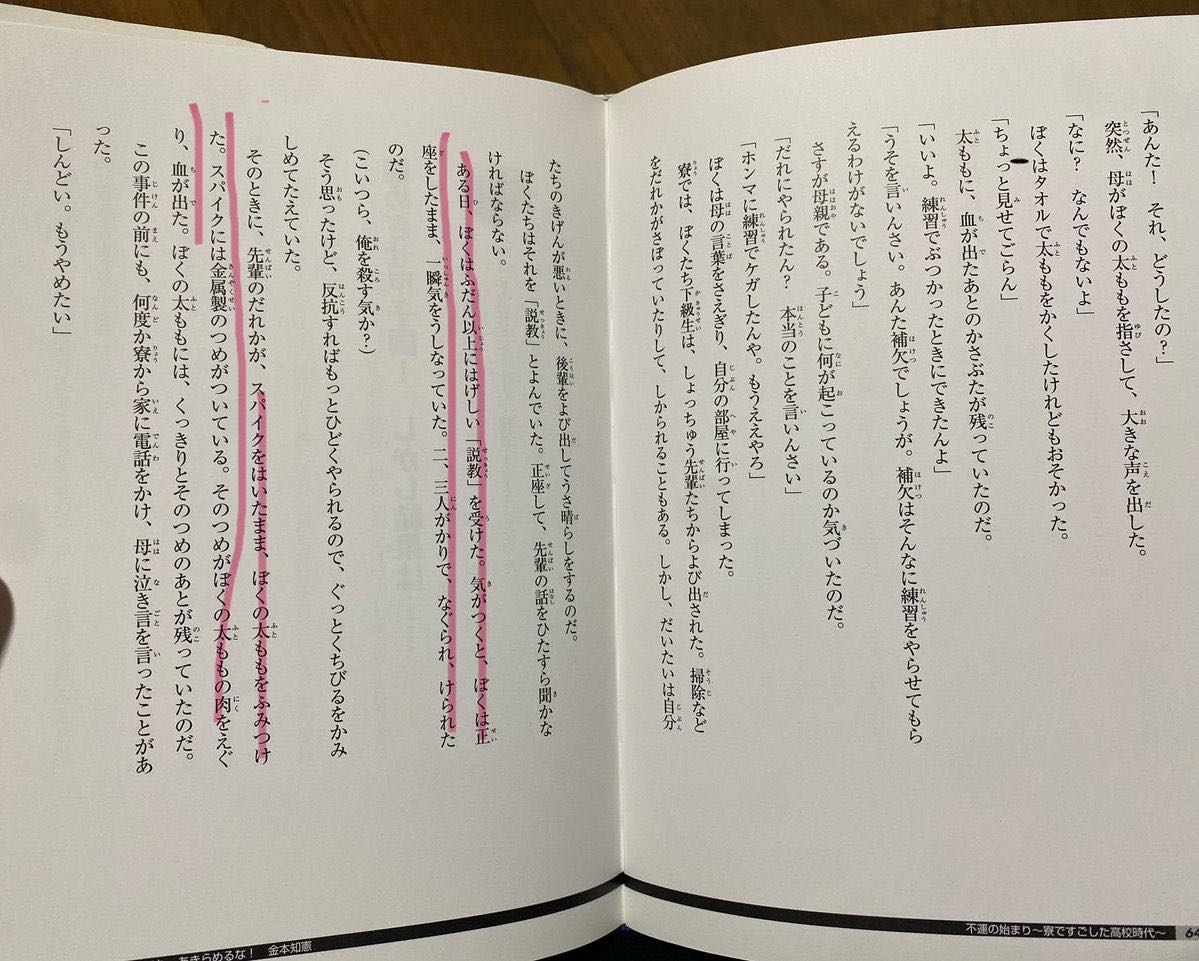 「あんた！　それ、どうしたの？」
突然、母がぼくの太ももを指さして、大きな声を出した。
「なに？　なんでもないよ」
ぼくはタオルで太ももをかくしたけれどもおそかった。
「ちょっと見せてごらん」
太ももに、血が出たあとのかさぶたが残っていたのだ。
「いいよ。練習でぶつかったときにできたんよ」
「うそを言いんさい。あんた補欠でしょうが。補欠はそんなに練習をやらせてもら
えるわけがないでしょう」
さすが母親である。子どもに何が起こっているのか気づいたのだ。
「だれにやられたん？　本当のことを言いんさい」
「ホンマに練習でケガしたんや。もうええやろ」
ぼくは母の言葉をさえぎり、自分の部屋に行ってしまった。
寮では、ぼくたち下級生は、しょっちゅう先輩たちからよび出された。掃除など
をだれかがさぼっていたりして、しかられることもある。しかし、だいたいは自分
たちのきげんが悪いときに、後輩をよび出してうさ晴らしをするのだ。
ぼくたちはそれを「説教」とよんでいた。正座して、先輩の話をひたすら聞かな
ければならない。
ある日、ぼくはふだん以上にはげしい「説教」を受けた。気がつくと、ぼくは正
座をしたまま、一瞬気をうしなっていた。二、三人がかりで、なぐられ、けられた
のだ。
（こいつら、俺を殺す気か？）
そう思ったけど、反抗すればもっとひどくやられるので、ぐっとくちびるをかみ
しめてたえていた。
そのときに、先輩のだれかが、スパイクをはいたまま、ぼくの太ももをふみつけ
た。スパイクには金属製のつめがついている。そのつめがぼくの太ももの肉をえぐ
り、血が出た。ぼくの太ももには、くっきりとそのつめのあとが残っていたのだ。
この事件の前にも、何度か寮から家に電話をかけ、母に泣き言を言ったことがあ
った。
「しんどい。もうやめたい」
不運の始まり〜寮ですごした高校時代〜 64
あきらめるな！　金本知憲